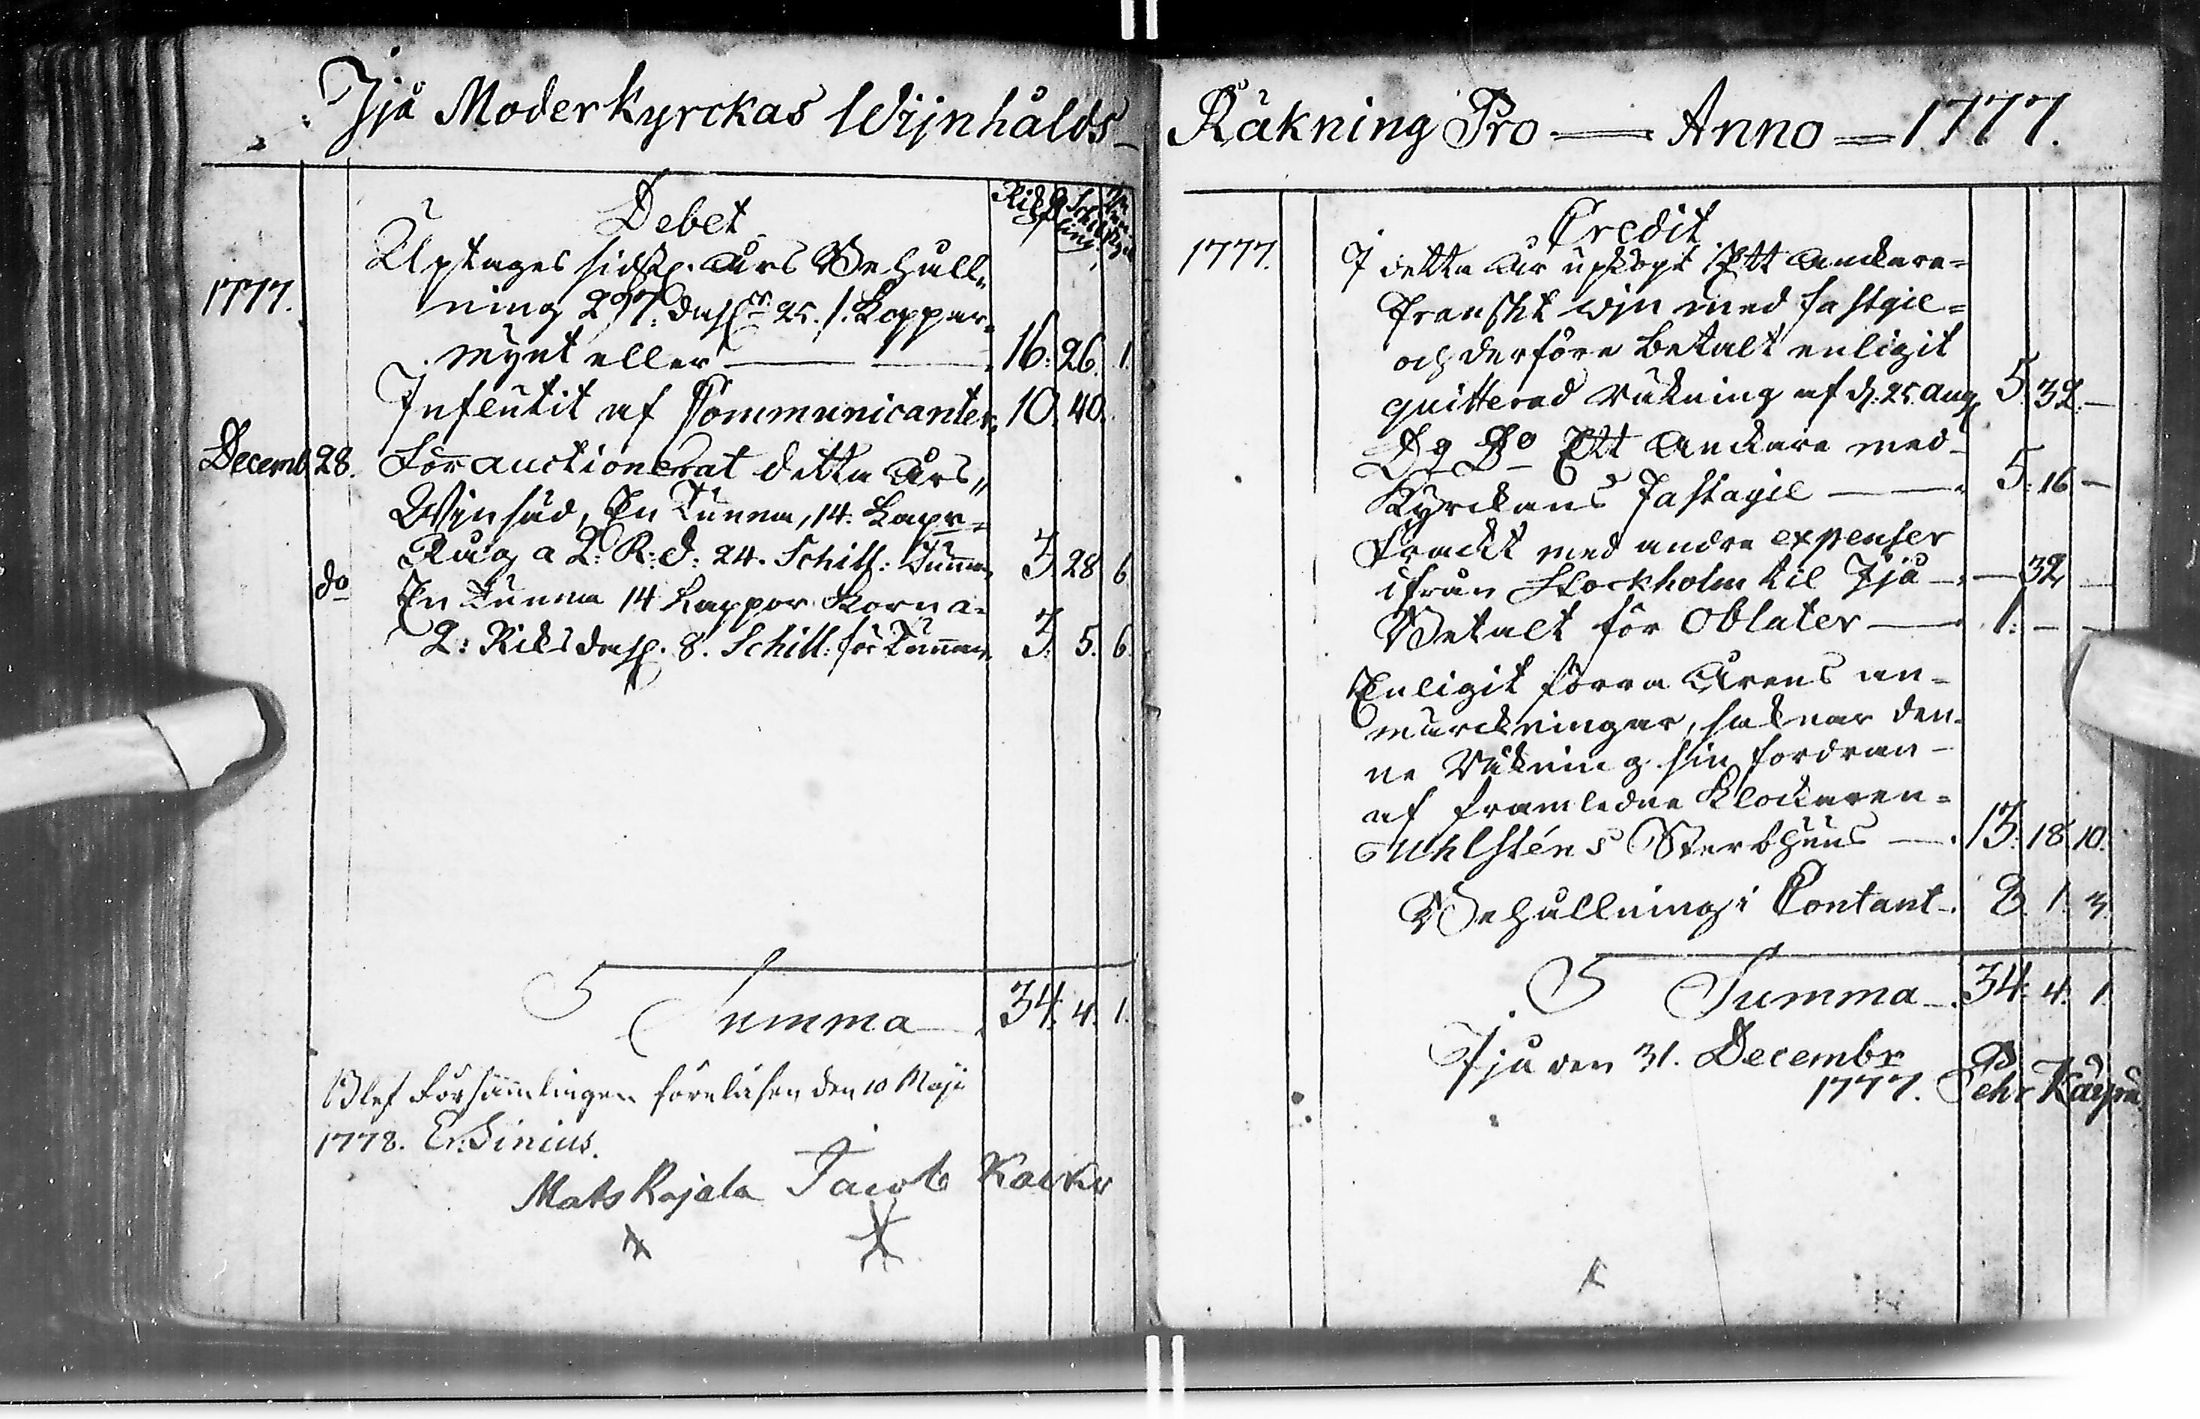 Jjå Moderkyrckas Wijnhålds-
Debet
Riksd. Schilling
1777. Uptages sidstl. Års Behåll-
ning 297: dahl. 25. /. Koppar-
mynt eller — 16. 26. 1.
Influtit af Communicanter. 10. 40.
Decemb. 28. Förauctionerat detta Års
Wijnsäd, En Tunna, 14. Kapr
Råg a 2: R:d: 24. Schill: Tunnan 3. 28 6
do En Tunna 14 Kappor Korn a
2: Riksdahl. 8. Schill: för Tunnan 3. 5. 6.
Summa 34. 4. 1.
Blef Församlingen föreläsen den 10 Maji
1778. Er. Sinius.
Mats Rajala Jacob
Räkning Pro — Anno — 1777.
Credit
1777. I detta År upköpt Ett Anckare
Franskt win med fastgie
och derföre betalt enligit
quitterad räkning af d. 25. Aug. 5. 32. —
Dg Do Ett Anckare med
Kyrckans Fastagie — 5. 16 —
Frackt med andra expenser
ifrån Stockholm til Jjå — — 32 —
Betalt för Oblater — 1. — —
Enligit förra Årens an-
märckningar, saknar den-
ne Räkning sin fordran
af framledne Klockaren
Uhlsténs Sterbhus — 13. 18. 10.
Behållning i Contant — 8. 1. 3.
Summa — 34. 4. 1
Jjå den 31. Decembr
1777. Pehr